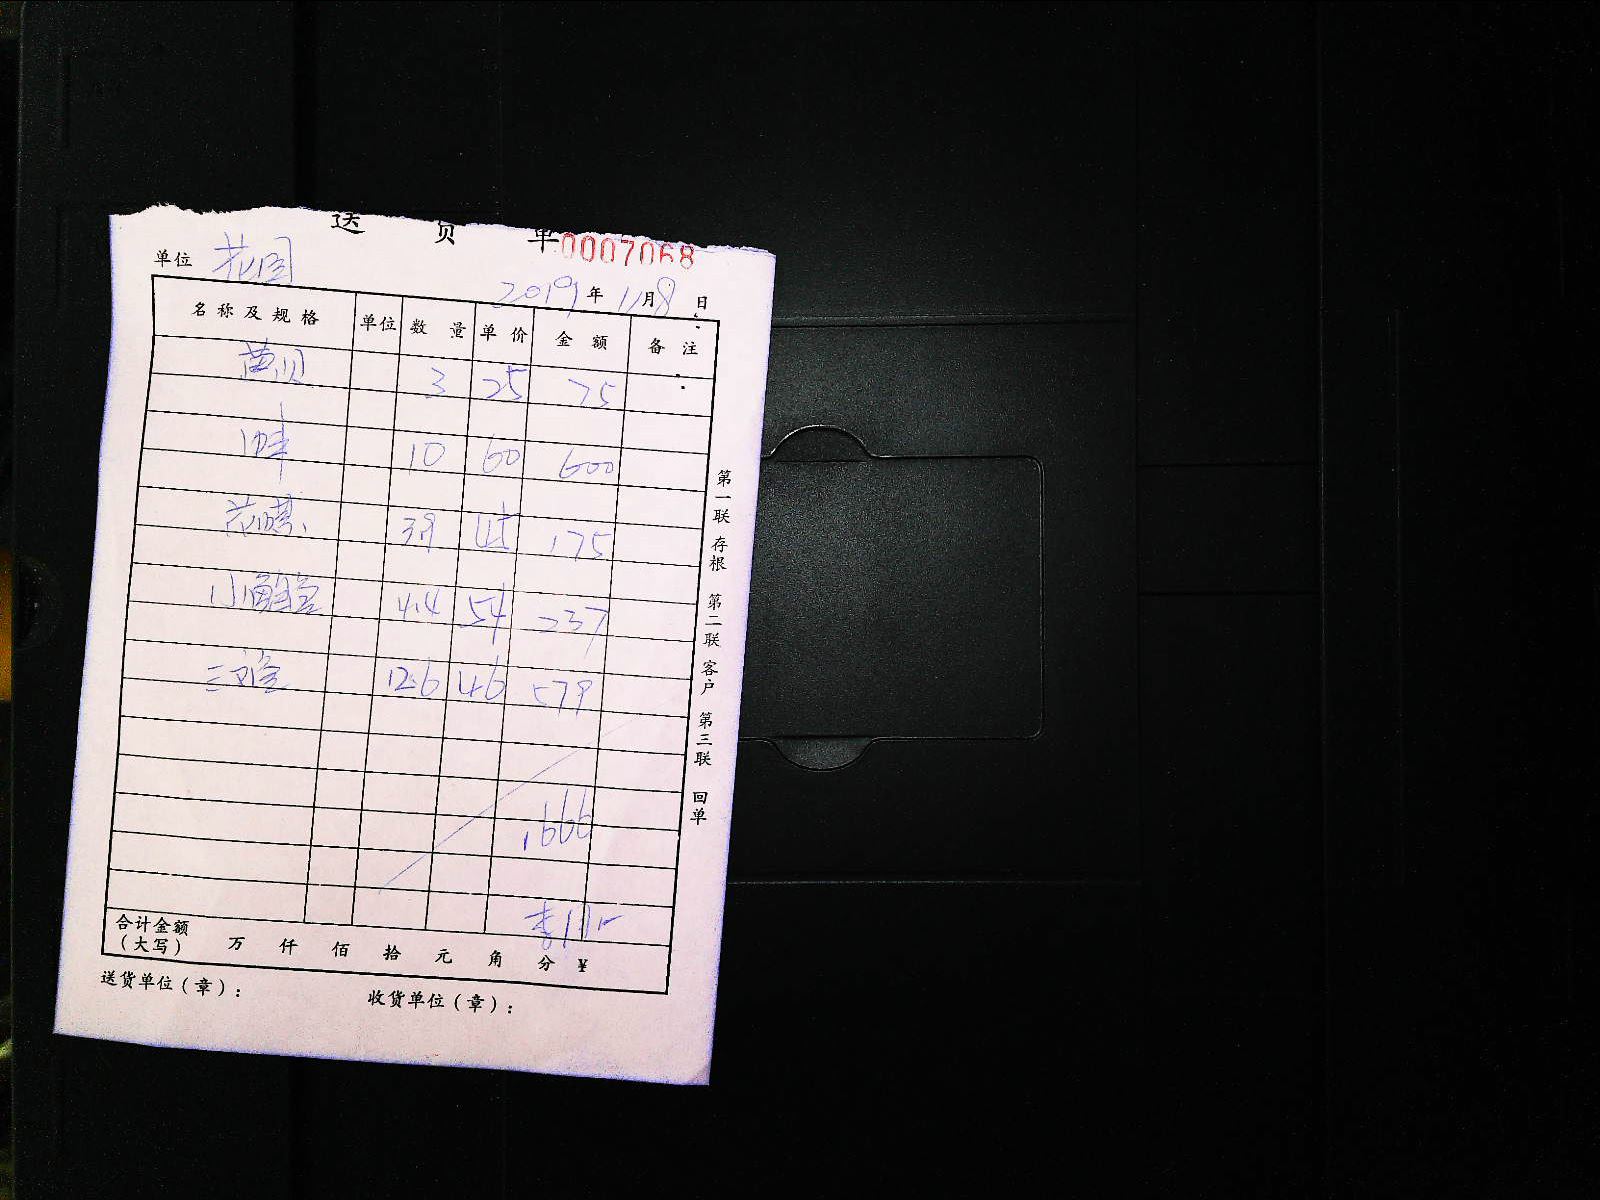 送 货 单 0007068
单位 花园
2019 年 11 月 8 日
名称及规格 单位 数量 单价 金额 备注
黄贝 3 25 75
10 60 600
花螺 39 45 175
小鲍鱼 4.4 54 237
三文鱼 12.6 46 579
1666
合计金额
(大写) 万 仟 佰 拾 元 角 分 ¥
送货单位(章): 收货单位(章):
第一联 存根 第二联 客户 第三联 回单